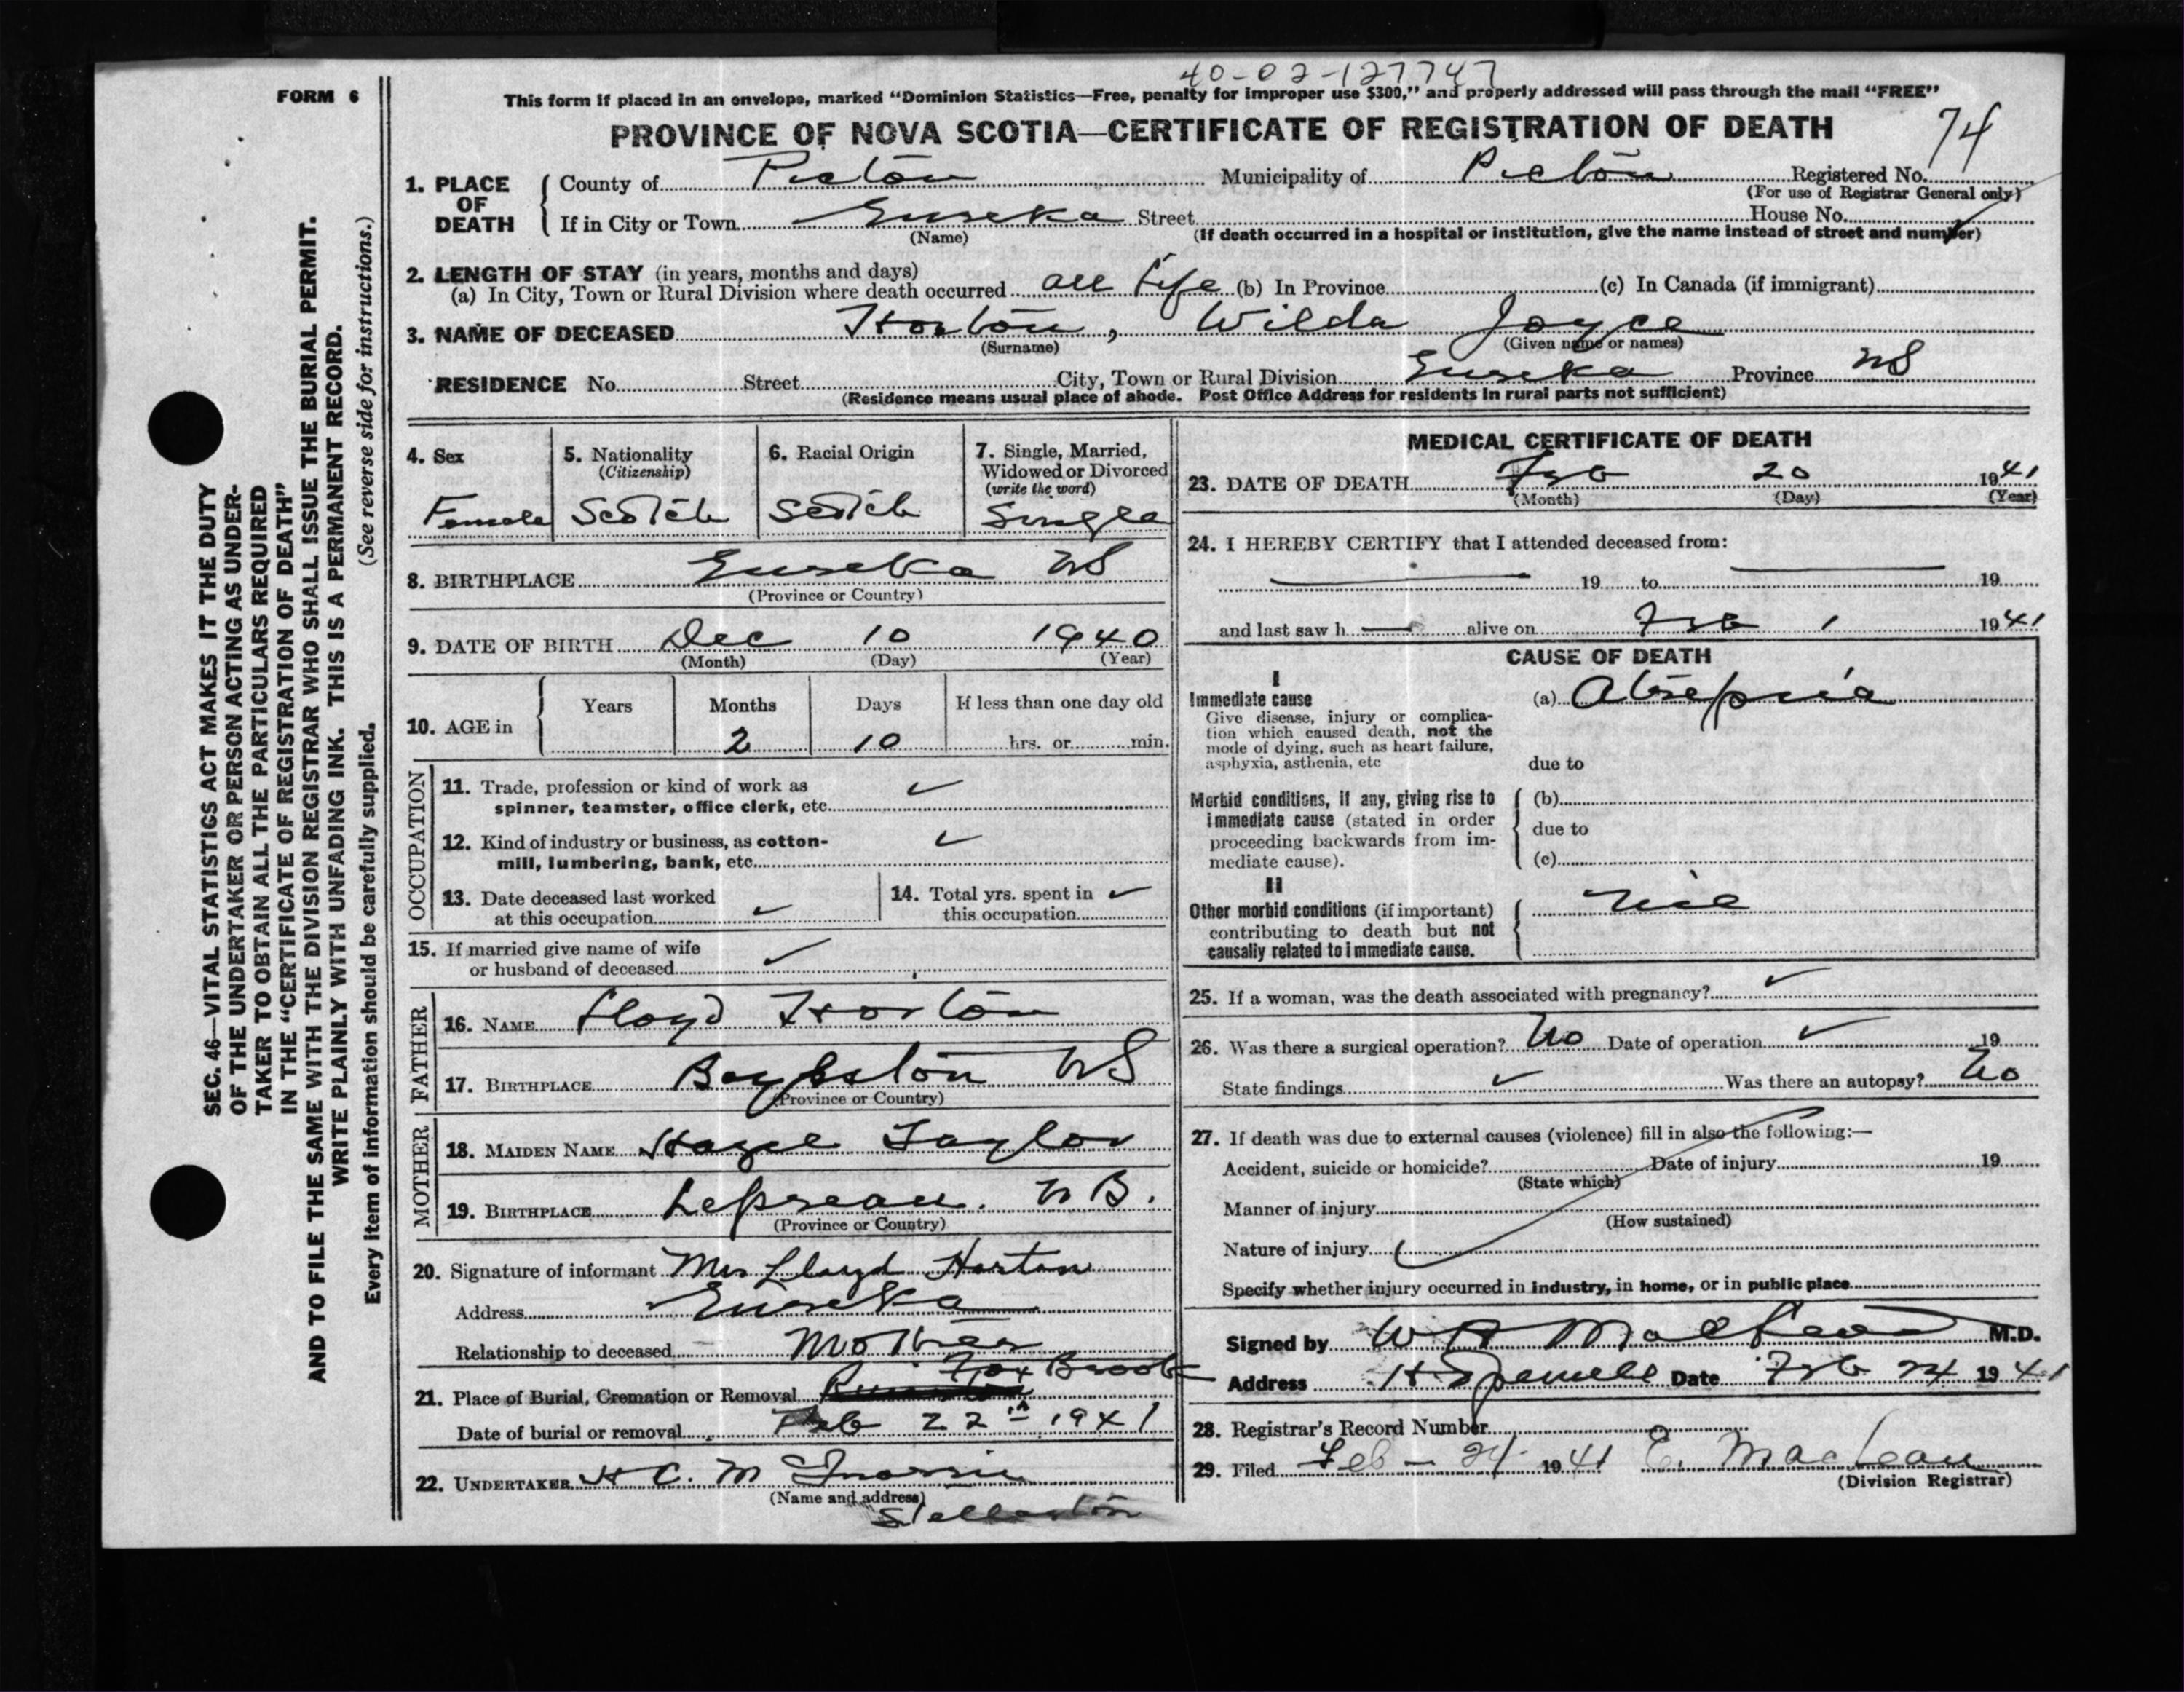 40-02-127747
FORM 6
This form if placed in an envelope, marked "Dominion Statistics—Free, penalty for improper use $300," and properly addressed will pass through the mail "FREE"
PROVINCE OF NOVA SCOTIA—CERTIFICATE OF REGISTRATION OF DEATH
74
1. PLACE OF DEATH
County of Pictou Municipality of Pictou Registered No.
(For use of Registrar General only)
If in City or Town Eureka Street House No.
(Name) (If death occurred in a hospital or institution, give the name instead of street and number)
2. LENGTH OF STAY (in years, months and days)
(a) In City, Town or Rural Division where death occurred all life (b) In Province (c) In Canada (if immigrant)
3. NAME OF DECEASED Horton, Wilda Joyce
(Surname) (Given name or names)
RESIDENCE No. Street City, Town or Rural Division Eureka Province NS
(Residence means usual place of abode. Post Office Address for residents in rural parts not sufficient)
SEC. 46—VITAL STATISTICS ACT MAKES IT THE DUTY
OF THE UNDERTAKER OR PERSON ACTING AS UNDER-
TAKER TO OBTAIN ALL THE PARTICULARS REQUIRED
IN THE "CERTIFICATE OF REGISTRATION OF DEATH"
AND TO FILE THE SAME WITH THE DIVISION REGISTRAR WHO SHALL ISSUE THE BURIAL PERMIT.
WRITE PLAINLY WITH UNFADING INK. THIS IS A PERMANENT RECORD.
Every item of information should be carefully supplied. (See reverse side for instructions.)
4. Sex
Female
5. Nationality
(Citizenship)
Scotch
6. Racial Origin
Scotch
7. Single, Married,
Widowed or Divorced
(write the word)
Single
8. BIRTHPLACE Eureka NS
(Province or Country)
9. DATE OF BIRTH Dec 10 1940
(Month) (Day) (Year)
10. AGE in Years Months Days If less than one day old
2 10 hrs. or min.
OCCUPATION
11. Trade, profession or kind of work as
spinner, teamster, office clerk, etc. ✓
12. Kind of industry or business, as cotton-
mill, lumbering, bank, etc. ✓
13. Date deceased last worked
at this occupation ✓
14. Total yrs. spent in
this occupation ✓
15. If married give name of wife
or husband of deceased ✓
FATHER
16. NAME Lloyd Horton
17. BIRTHPLACE Boylston NS
(Province or Country)
MOTHER
18. MAIDEN NAME Hazel Taylor
19. BIRTHPLACE Lepreau. N B.
(Province or Country)
20. Signature of informant Mrs Lloyd Horton
Address Eureka
Relationship to deceased Mother
21. Place of Burial, Cremation or Removal Fox Brook
Date of burial or removal Feb 22th 1941
22. UNDERTAKER H C. M
(Name and address)
Stellarton
MEDICAL CERTIFICATE OF DEATH
23. DATE OF DEATH Feb 20 1941
(Month) (Day) (Year)
24. I HEREBY CERTIFY that I attended deceased from:
19 to 19
and last saw h alive on Feb 1 1941
CAUSE OF DEATH
I
Immediate cause
Give disease, injury or complica-
tion which caused death, not the
mode of dying, such as heart failure,
asphyxia, asthenia, etc
(a) Atrepsia
due to
Morbid conditions, if any, giving rise to
immediate cause (stated in order
proceeding backwards from im-
mediate cause).
(b)
due to
(c)
II
Other morbid conditions (if important)
contributing to death but not
causally related to immediate cause.
Nil
25. If a woman, was the death associated with pregnancy? ✓
26. Was there a surgical operation? No Date of operation ✓ 19
State findings ✓ Was there an autopsy? No
27. If death was due to external causes (violence) fill in also the following:—
Accident, suicide or homicide? Date of injury 19
(State which)
Manner of injury
(How sustained)
Nature of injury
Specify whether injury occurred in industry, in home, or in public place
Signed by W A MacLeod M.D.
Address Hopewell Date Feb 24 1941
28. Registrar's Record Number
29. Filed Feb — 24 1941 E. MacLean
(Division Registrar)